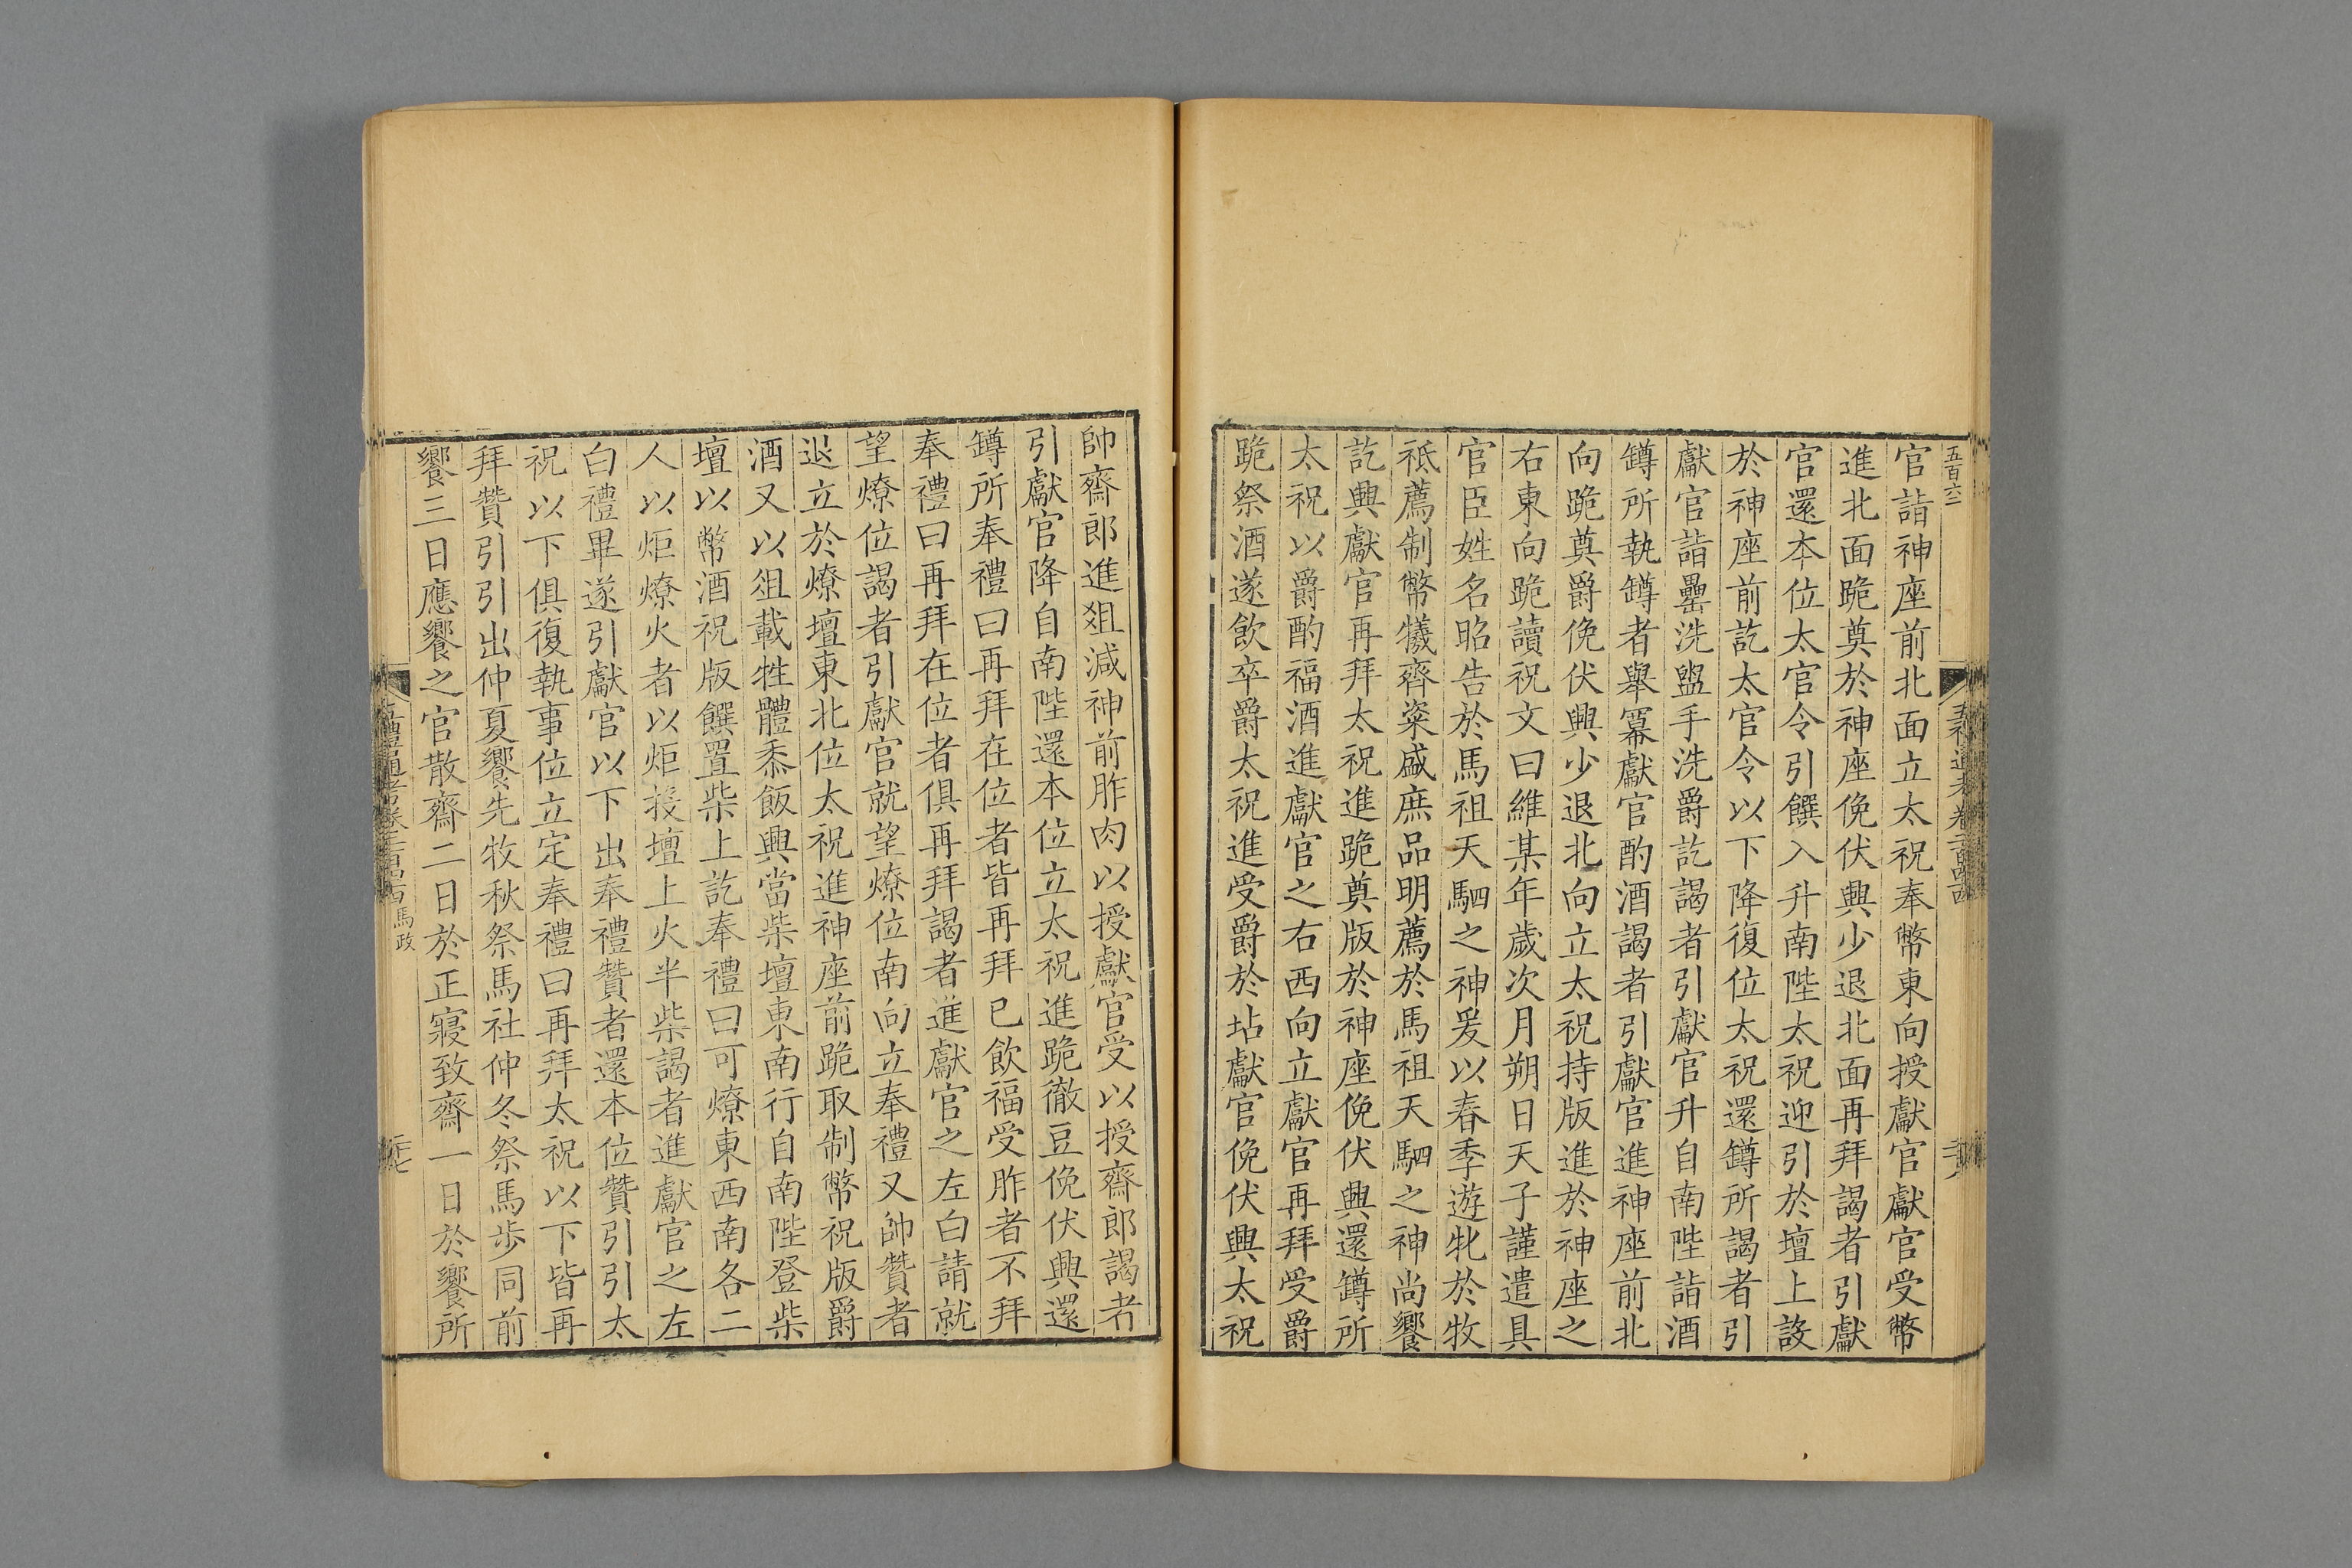 五百六二
官詣神座前北面立太祝奉幣東向授獻官獻官受幣
進北面跪奠於神座俛伏興少退北面再拜謁者引獻
官還本位太官令引饌入升南陛太祝迎引於壇上設
於神座前訖太官令以下降復位太祝還罇所謁者引
獻官詣罍洗盥手洗爵訖謁者引獻官升自南陛詣酒
罇所執罇者舉冪獻官酌酒謁者引獻官進神座前北
向跪奠爵俛伏興少退北向立太祝持版進於神座之
右東向跪讀祝文曰維某年歲次月朔日天子謹遣具
官臣姓名昭告於馬祖天駟之神爰以春季遊牝於牧
祗薦制幣犧齊粢盛庶品明薦於馬祖天駟之神尚饗
訖興獻官再拜太祝進跪奠版於神座俛伏興還罇所
太祝以爵酌福酒進獻官之右西向立獻官再拜受爵
跪祭酒遂飲卒爵太祝進受爵於坫獻官俛伏興太祝
帥齋郎進俎減神前胙肉以授獻官受以授齋郎謁者
引獻官降自南陛還本位立太祝進跪徹豆俛伏興還
罇所奉禮曰再拜在位者皆再拜已飲福受胙者不拜
奉禮曰再拜在位者俱再拜謁者進獻官之左白請就
望燎位謁者引獻官就望燎位南向立奉禮又帥贊者
退立於燎壇東北位太祝進神座前跪取制幣祝版爵
酒又以俎載牲體黍飯興當柴壇東南行自南陛登柴
壇以幣酒祝版饌置柴上訖奉禮曰可燎東西南各二
人以炬燎火者以炬投壇上火半柴謁者進獻官之左
白禮畢遂引獻官以下出奉禮贊者還本位贊引引太
祝以下俱復執事位立定奉禮曰再拜太祝以下皆再
拜贊引引出仲夏饗先牧秋祭馬社仲冬祭馬步同前
饗三日應饗之官散齋二日於正寢致齋一日於饗所
馬政